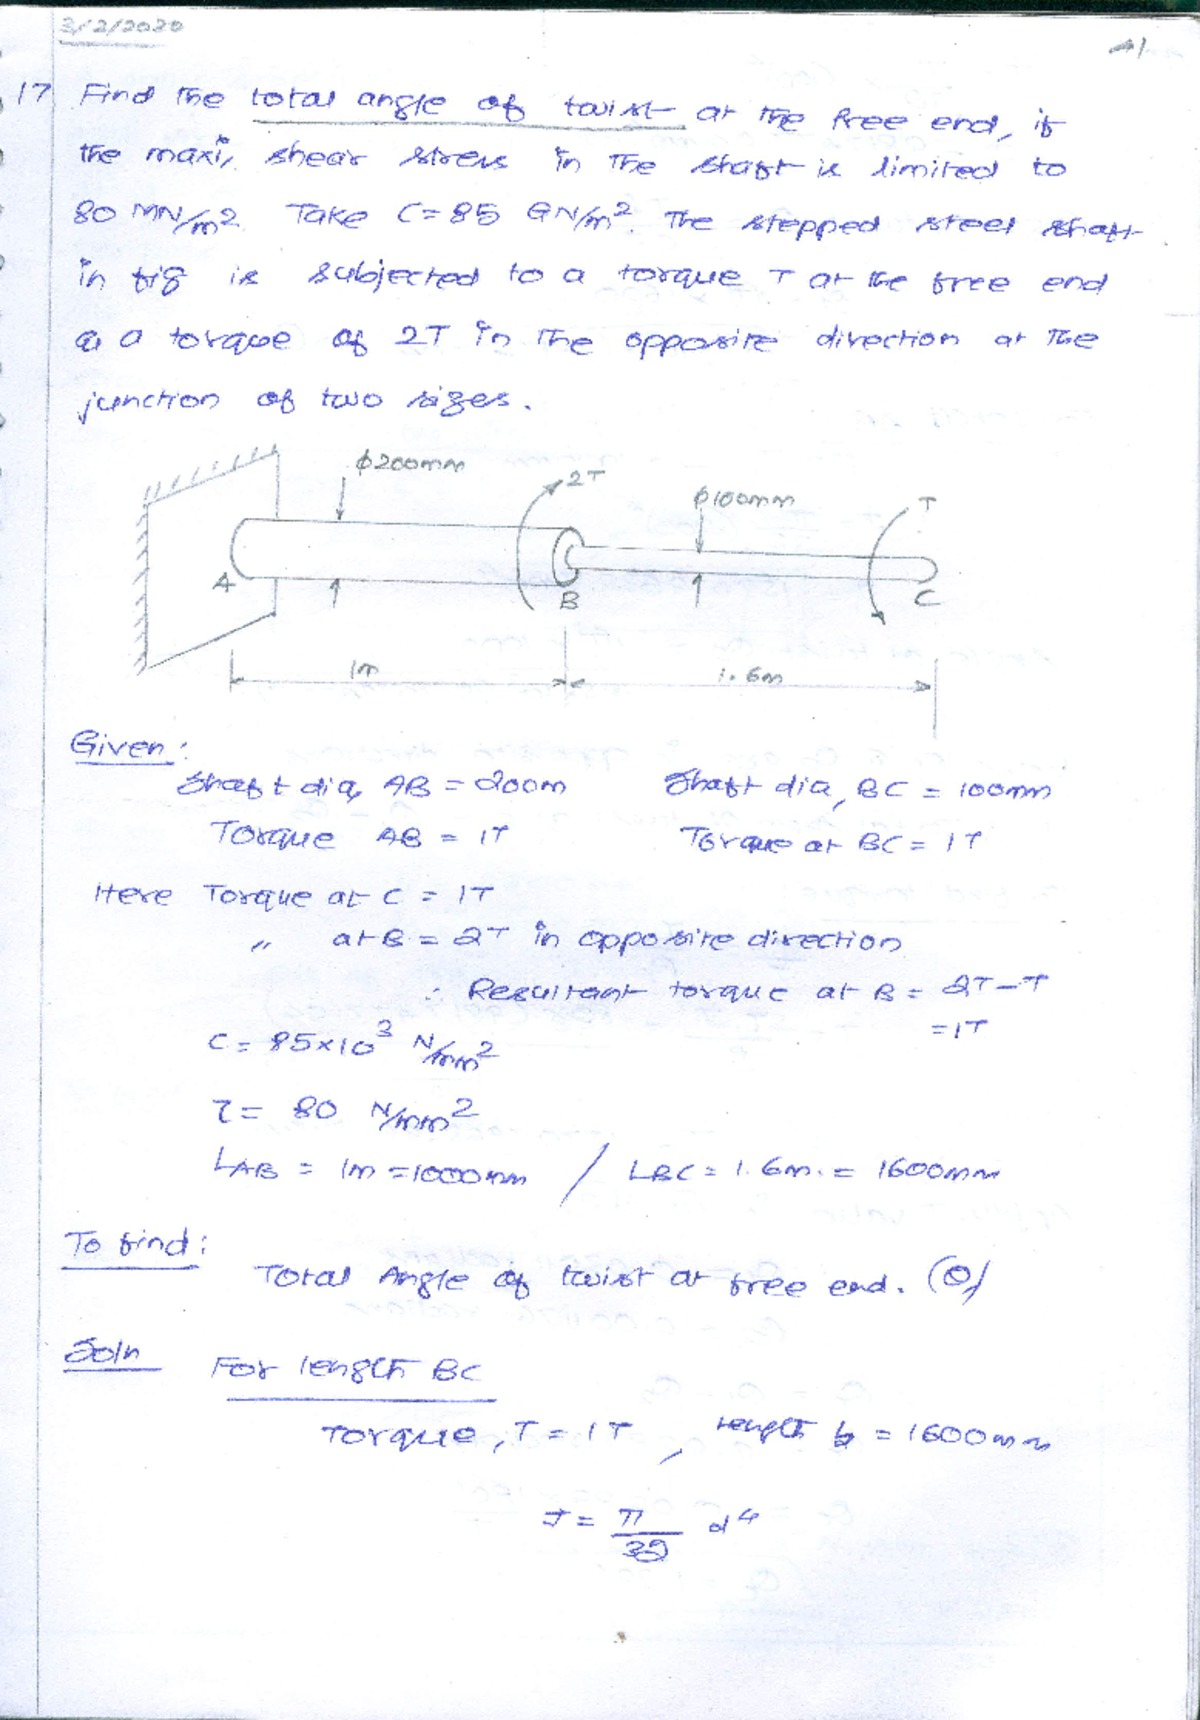 3/2/2020
41
17 Find the total angle of twist at the free end, if
the maxi, shear stress in the shaft is limited to
80 MN/m2. Take C=85 GN/m2. The stepped steel shaft
in fig is subjected to a torque T at the free end
& a torque of 2T in the opposite direction at the
junction of two sizes.
ϕ200mm
2T
ϕ100mm
T
A
B
C
1m
1.6m
Given:
Shaft dia, AB = 200m Shaft dia, BC = 100mm
Torque AB = 1T Torque at BC = 1T
Here Torque at C = 1T
" at B = 2T in opposite direction
∴ Resultant torque at B = 2T-T
= 1T
C = 85x10^3 N/mm2
τ = 80 N/mm2
LAB = 1m = 1000mm / LBC = 1.6m. = 1600mm
To find:
Total Angle of twist at free end. (θ)
Soln For length BC
Torque, T = 1T, length = 1600mm
J = π/32 d^4